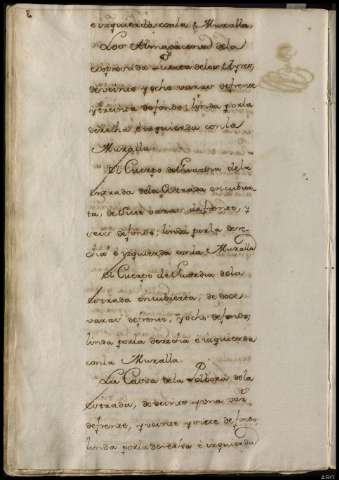 e izquierda con la Muralla.
Los Almagacenes de la
de veinte y ocho varas de frente
y treinta de fondo; linda por la
derecha e izquierda con la
Muralla.
El Cuerpo de Guardia de la
entrada de la Estrada encubier
ta, de varas de frente, y
seis de fondo; linda por la dere
cha e izquierda con la Muralla
El Cuerpo de Guardia de la
Estrada encubierta, de doce
varas de frente, y ocho de fondo,
linda por la derecha e izquierda
con la Muralla.
La Cassa de la Polbora de la
Estrada, de veinte y una var.
de frente, y veinte y siete de fondo,
linda por la derecha e izquierda